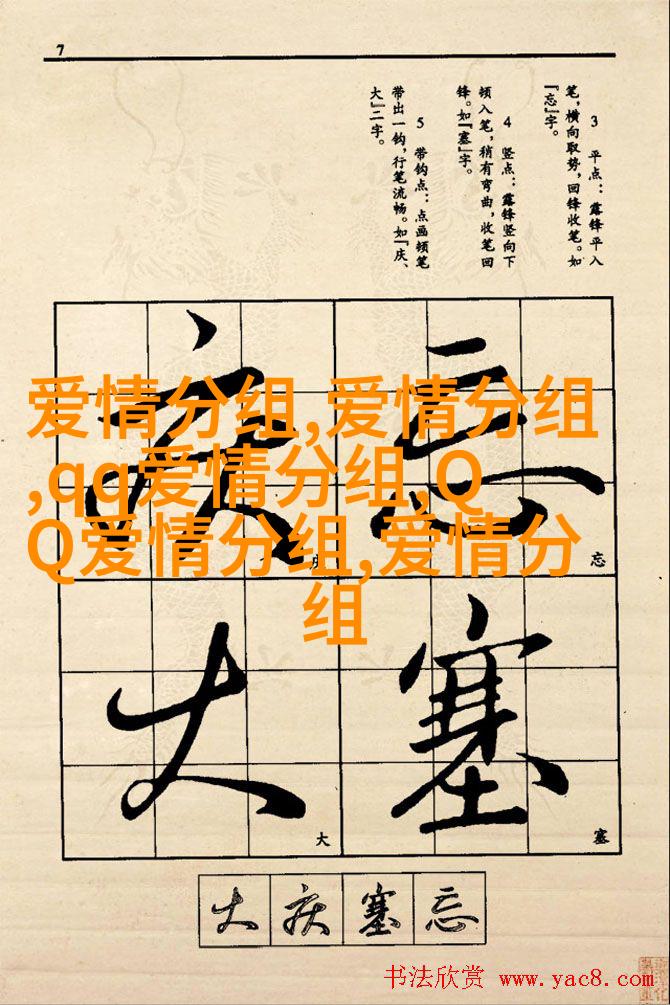 7
3 平点：露锋平入
笔，横向取势，回锋收笔。如
『忘』字。
4 竖点：露锋竖向下
顿入笔，稍有弯曲，收笔回
锋。如『塞』字。
5 带钩点：点画顿笔
带出一钩，行笔流畅。如『庆、
大』二字。
爱情分组,爱情分组
,qq爱情分组,Q
Q爱情分组,爱情分
组
忘
庆
忘
塞
大
塞
大
大庆塞忘
书法欣赏 www.yac8.com